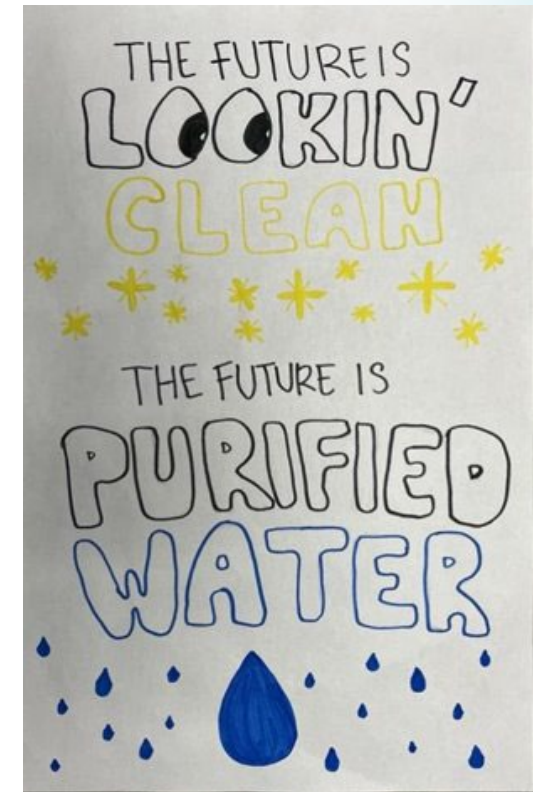 THE FUTURE IS
LOOKIN'
CLEAN
THE FUTURE IS
PURIFIED
WATER